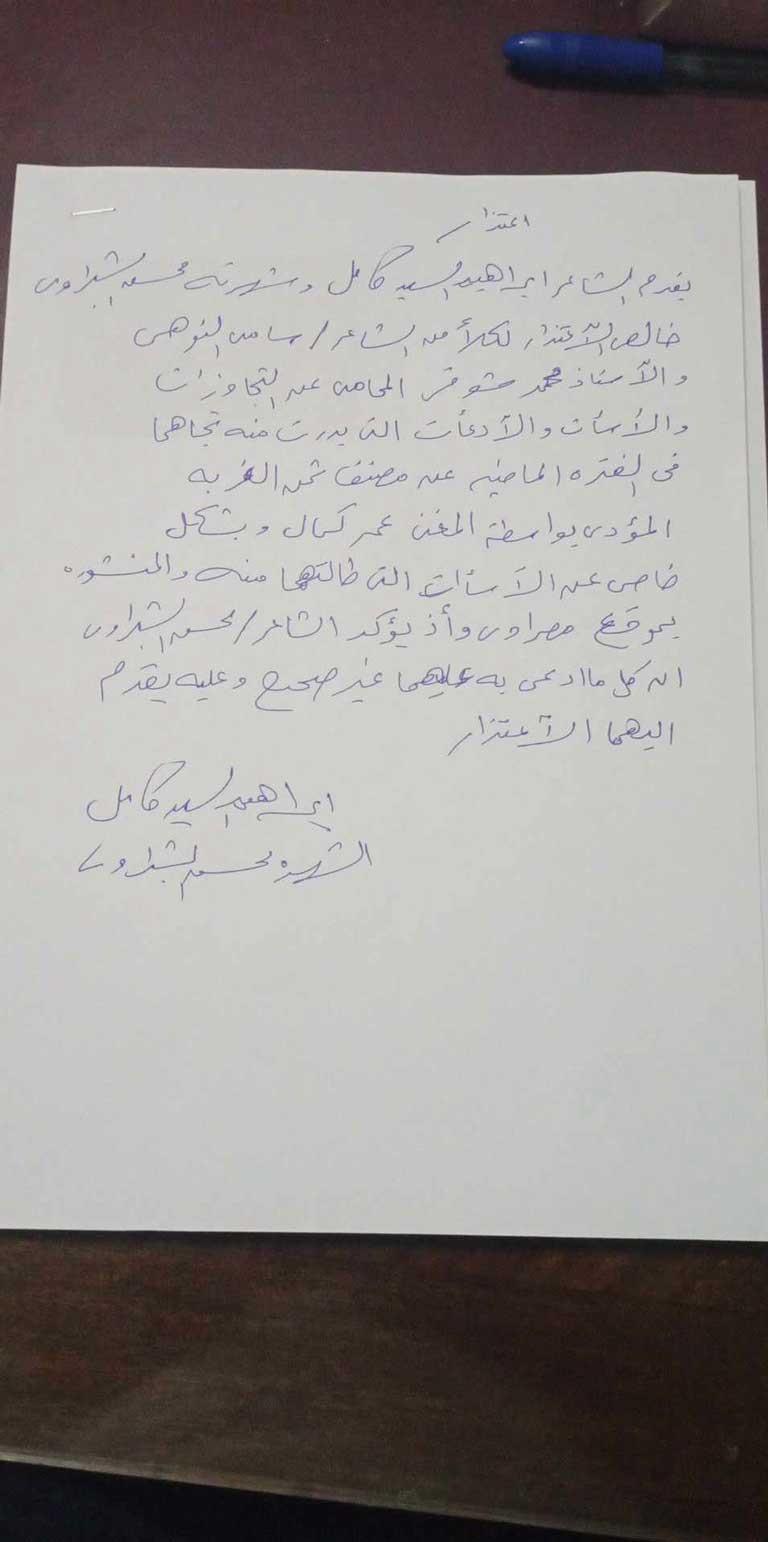 اعتذار
يقدم الشاعر ابراهيم السيد كامل وشهرته محسن الشبراوى
خالص الآعتذار لكلاً من الشاعر / سامى النوهى
والآستاذ محمد شوقى المحامى عن التجاوزات
والأسأت والأدعأت التى بدرت منه تجاهما
فى الفتره الماضيه عن مصنف ثمن الغربه
المؤدى بواسطة المغنى عمر كمال وبشكل
خاص عن الآسأت التى طالتهما منه والمنشوره
بموقع مصراوى وأذ يؤكد الشاعر / محسن الشبراوى
ان كل ما ادعى به عليهما غير صحيح وعليه يقدم
اليهما الآعتذار
ابراهيم السيد كامل
الشهره محسن الشبراوى